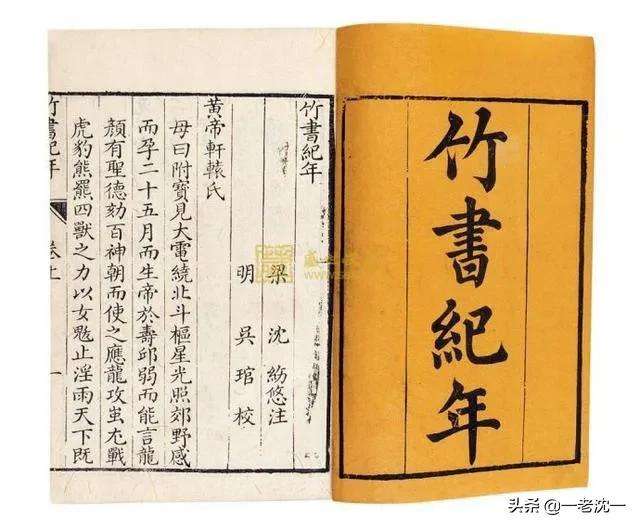 竹書紀年
竹書紀年
梁 沈 約悠注
明 吳 琯 校
黄帝軒轅氏
母曰附寶見大電繞北斗樞星光照郊野感
而孕二十五月而生帝於壽邱弱而能言龍
顏有聖德劾百神朝而使之應龍攻蚩尤戰
虎豹熊羆四獸之力以女魃止淫雨天下既
竹書紀年 卷上 一
头条 @一老沈一